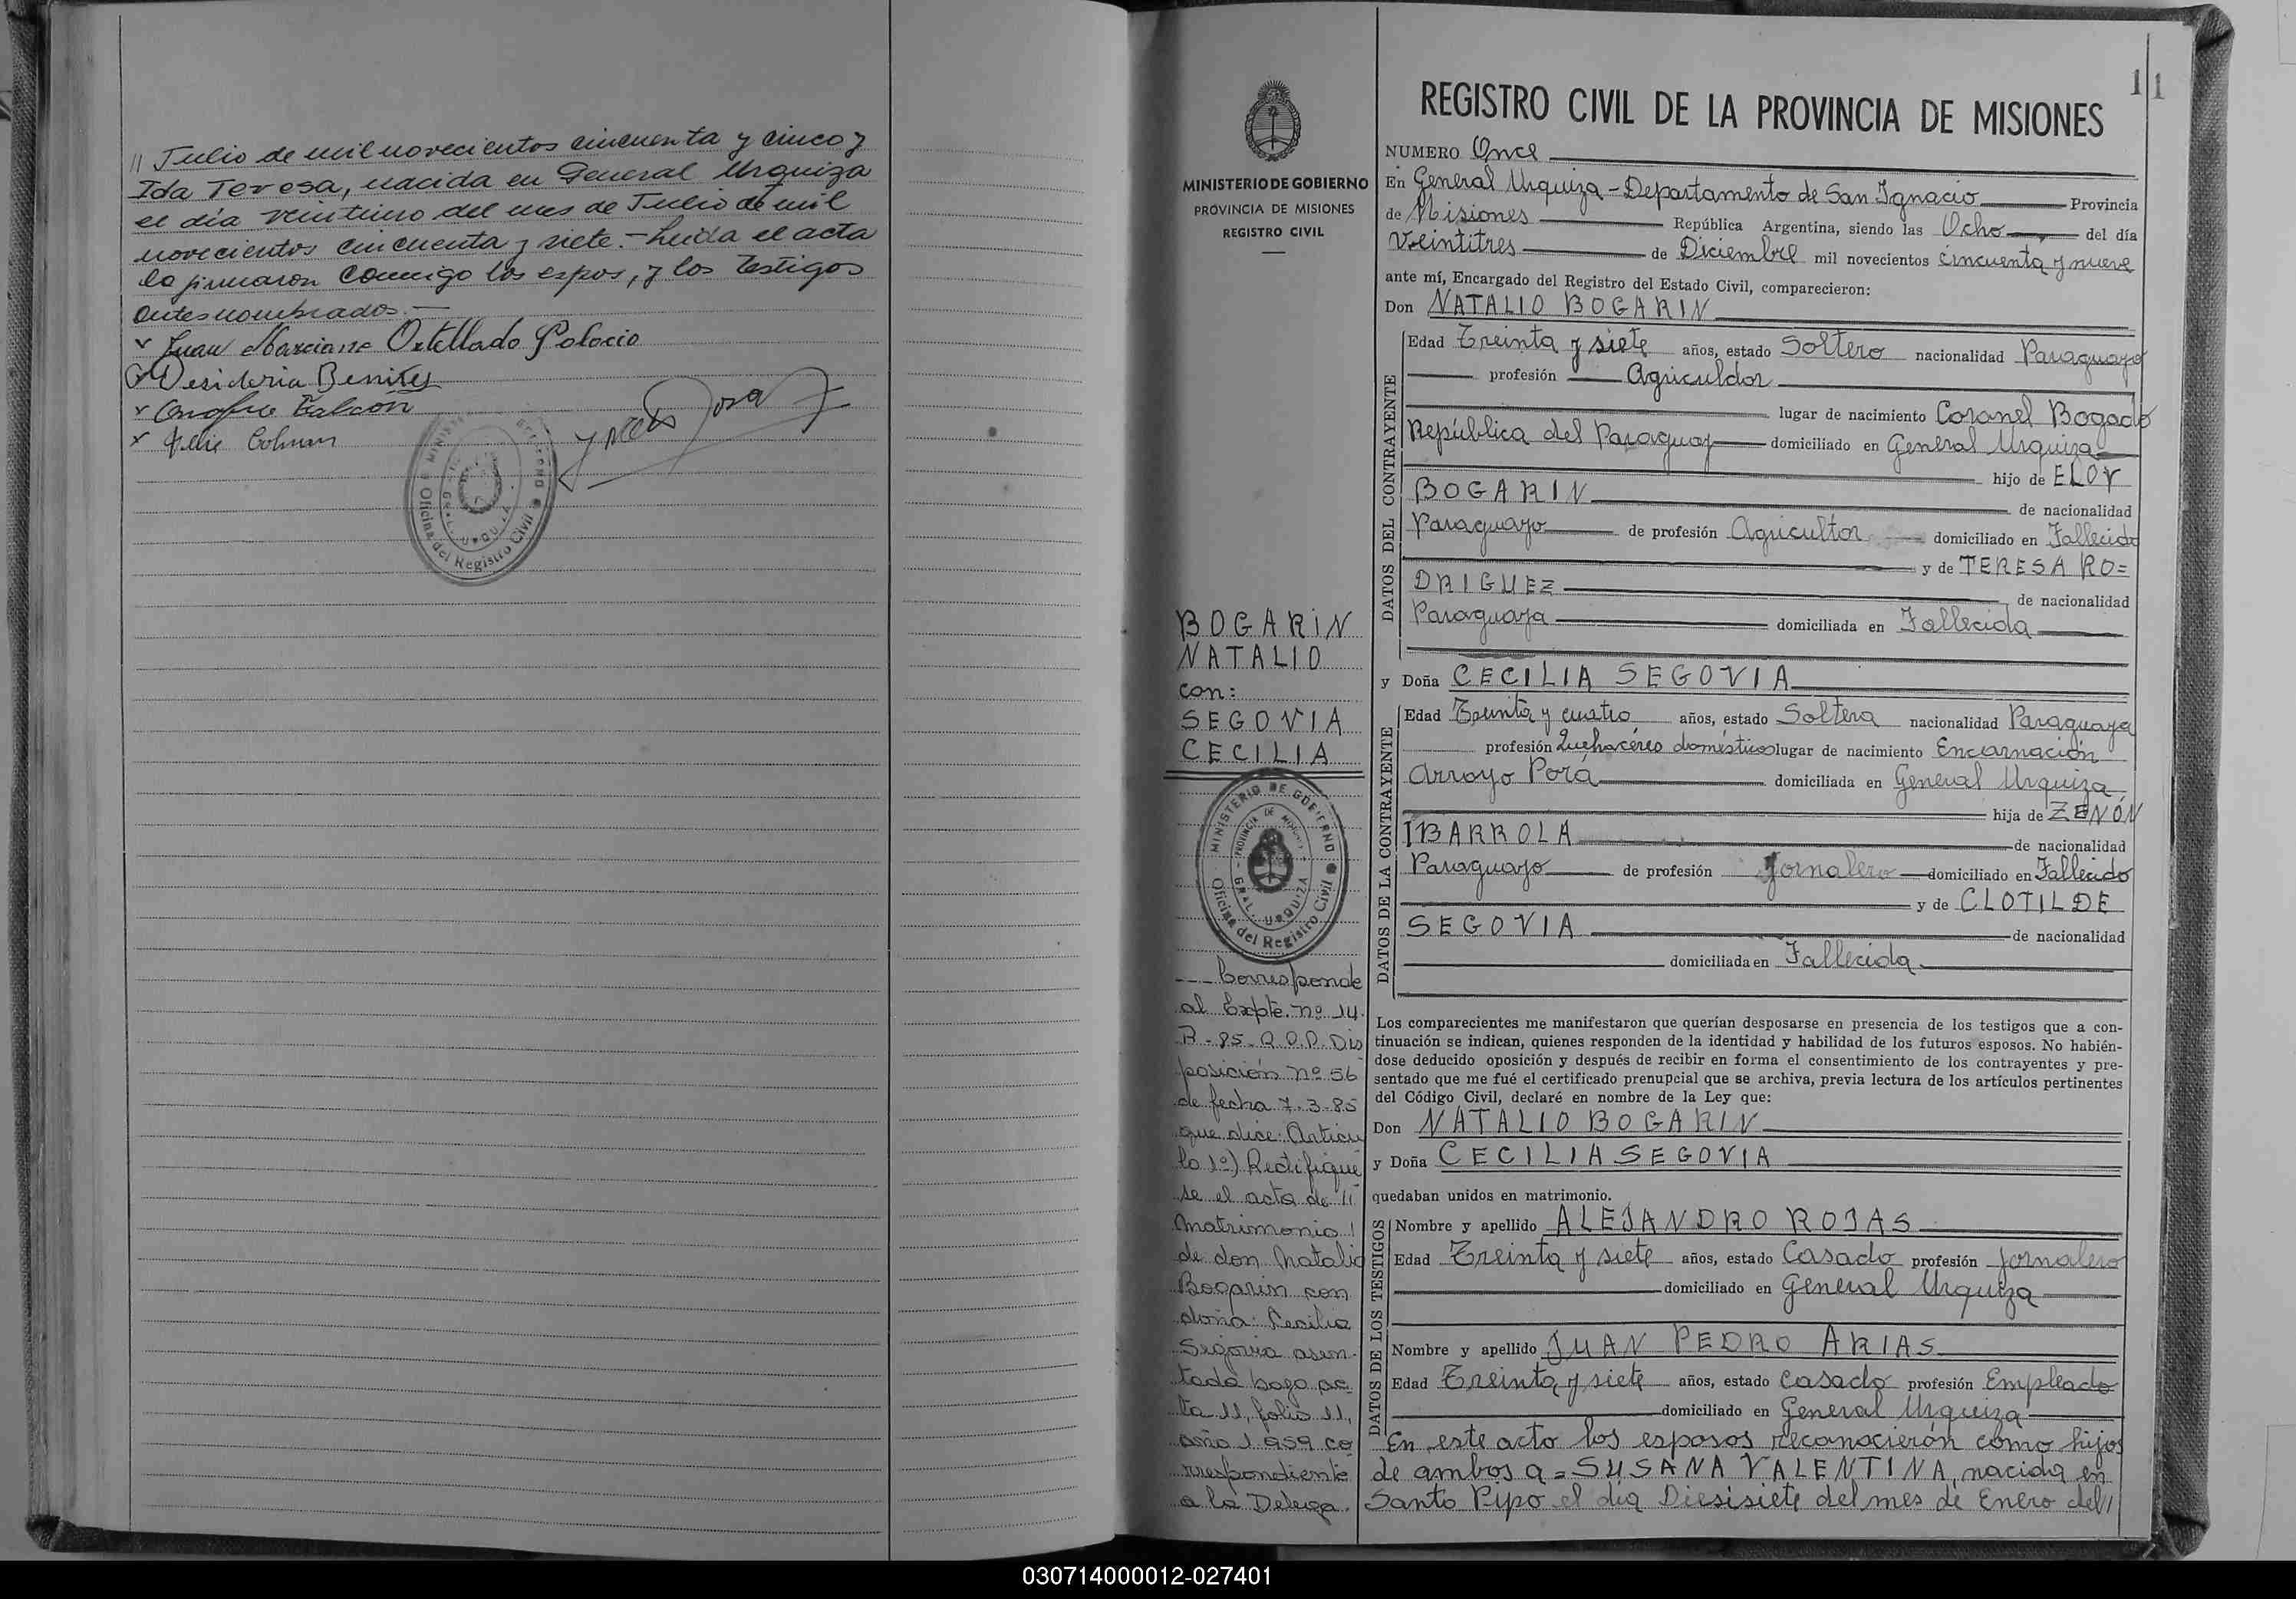 // Julio de mil novecientos cincuenta y cinco y
Ida Teresa, nacida en General Urquiza
el día veintiuno del mes de Julio de mil
novecientos cincuenta y siete.- Leída el acta
la firmaron conmigo los espos, y los testigos
antes nombrados.-
Juan Marciano Ortellado Palacio
Desideria Benitez
Onofre Falcón
Felix Colman
Oficina del Registro Civil
GRAL. URQUIZA
11
REGISTRO CIVIL DE LA PROVINCIA DE MISIONES
MINISTERIO DE GOBIERNO
PROVINCIA DE MISIONES
REGISTRO CIVIL
NUMERO Once
En General Urquiza - Departamento de San Ignacio Provincia
de Misiones República Argentina, siendo las Ocho del día
Veintitres de Diciembre mil novecientos cincuenta y nueve
ante mí, Encargado del Registro del Estado Civil, comparecieron:
Don NATALIO BOGARIN
DATOS DEL CONTRAYENTE
Edad Treinta y siete años, estado Soltero nacionalidad Paraguayo
profesión Agriculdor
lugar de nacimiento Coronel Bogado
República del Paraguay domiciliado en General Urquiza
hijo de ELOY
BOGARIN de nacionalidad
Paraguayo de profesión Agricultor domiciliado en Fallecido
y de TERESA RO=
DRIGUEZ de nacionalidad
Paraguaya domiciliada en Fallecida
y Doña CECILIA SEGOVIA
DATOS DE LA CONTRAYENTE
Edad Treinta y cuatro años, estado Soltera nacionalidad Paraguaya
profesión Quehacéres domésticos lugar de nacimiento Encarnación
Arroyo Porá domiciliada en General Urquiza
hija de ZENÓN
IBARROLA de nacionalidad
Paraguayo de profesión Jornalero domiciliado en Fallecido
y de CLOTILDE
SEGOVIA de nacionalidad
domiciliada en Fallecida
Los comparecientes me manifestaron que querían desposarse en presencia de los testigos que a con-
tinuación se indican, quienes responden de la identidad y habilidad de los futuros esposos. No habién-
dose deducido oposición y después de recibir en forma el consentimiento de los contrayentes y pre-
sentado que me fué el certificado prenupcial que se archiva, previa lectura de los artículos pertinentes
del Código Civil, declaré en nombre de la Ley que:
Don NATALIO BOGARIN
y Doña CECILIA SEGOVIA
quedaban unidos en matrimonio.
DATOS DE LOS TESTIGOS
Nombre y apellido ALEJANDRO ROJAS
Edad Treinta y siete años, estado Casado profesión Jornalero
domiciliado en General Urquiza
Nombre y apellido JUAN PEDRO ARIAS
Edad Treinta y siete años, estado Casado profesión Empleado
domiciliado en General Urquiza
En este acto los esposos reconocieron como hijos
de ambos a = SUSANA VALENTINA, nacida en
Santo Pipó el día Diesisiete del mes de Enero del //
BOGARIN
NATALIO
con:
SEGOVIA
CECILIA
MINISTERIO DE GOBIERNO
PROVINCIA DE MISIONES
GRAL. URQUIZA
Oficina del Registro Civil
Corresponde
al Expte. nº 14.
B-85-R.P.P. Dis
posición nº 56
de fecha 7-3-85
que dice: Articu
lo 1º) Rectifique
se el acta de
Matrimonio
de don Natalio
Bogarin con
doña: Cecilia
Segovia asen-
tada bajo ac
ta 11, folio 11,
año 1.959 co
rrespondiente
a la Delega-
030714000012-027401